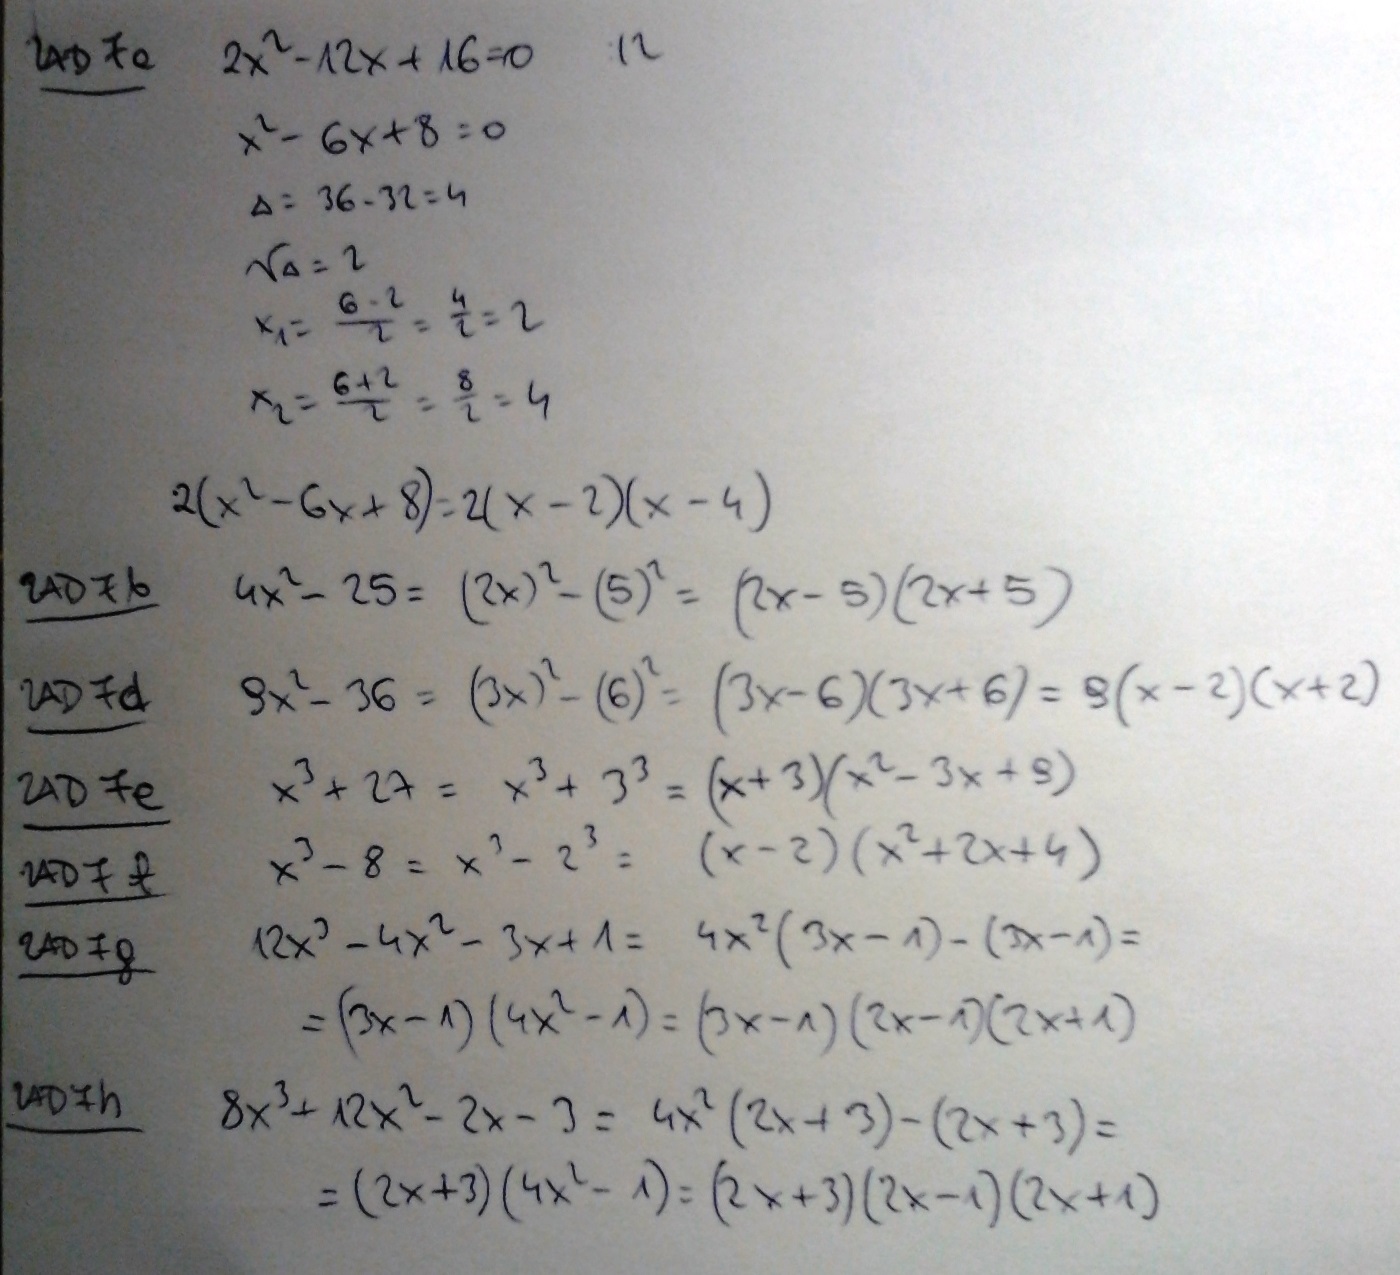 ZAD 7a 2x² - 12x + 16 = 0 |:2
x² - 6x + 8 = 0
Δ = 36 - 32 = 4
√Δ = 2
x₁ = (6 - 2)/2 = 4/2 = 2
x₂ = (6 + 2)/2 = 8/2 = 4
2(x² - 6x + 8) = 2(x - 2)(x - 4)
ZAD 7b 4x² - 25 = (2x)² - (5)² = (2x - 5)(2x + 5)
ZAD 7d 9x² - 36 = (3x)² - (6)² = (3x - 6)(3x + 6) = 9(x - 2)(x + 2)
ZAD 7e x³ + 27 = x³ + 3³ = (x + 3)(x² - 3x + 9)
ZAD 7f x³ - 8 = x³ - 2³ = (x - 2)(x² + 2x + 4)
ZAD 7g 12x³ - 4x² - 3x + 1 = 4x²(3x - 1) - (3x - 1) =
= (3x - 1)(4x² - 1) = (3x - 1)(2x - 1)(2x + 1)
ZAD 7h 8x³ + 12x² - 2x - 3 = 4x²(2x + 3) - (2x + 3) =
= (2x + 3)(4x² - 1) = (2x + 3)(2x - 1)(2x + 1)